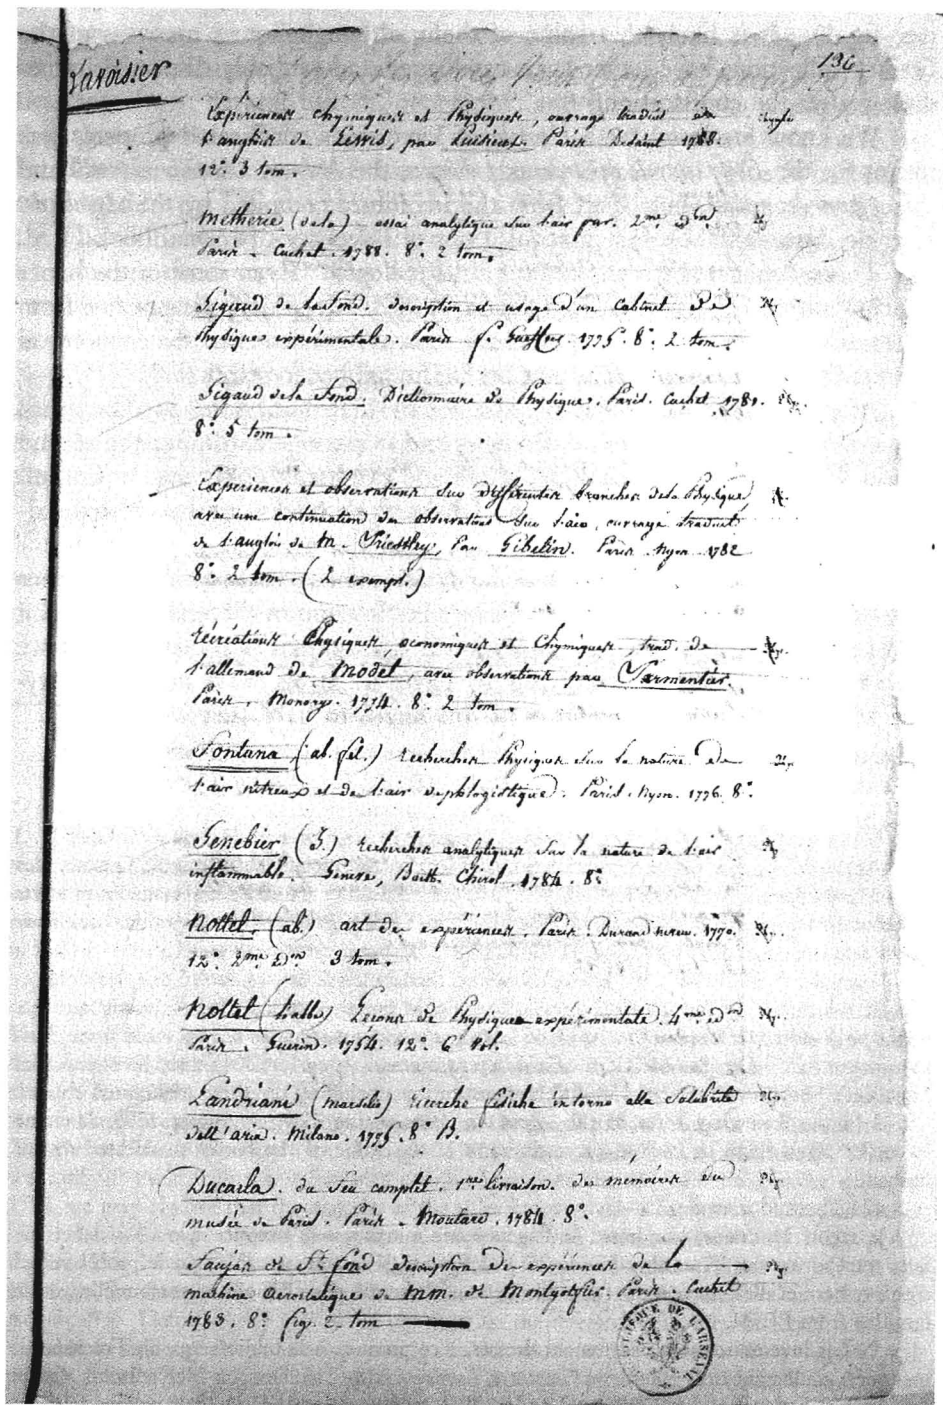 Lavoisier
136
Expériences chymiques et Physiques, ouvrage traduit de
l'anglois de Lewis, par Puisieux. Paris Desaint 1768.
12°. 3 tom.
Metherie (de la) essai analytique sur l'air pur. 2me Edon.
Paris. Cuchet. 1788. 8°. 2 tom.
Sigaud de la fond. description et usage d'un Cabinet De
Physique expérimentale. Paris. f. Gueffier. 1775. 8°. 2 tom.
Sigaud de la Fond. Dictionnaire de Physique. Paris. Cuchet 1781.
8°. 5 tom.
Expériences et observations sur Différentes branches de la Physique,
avec une continuation des observations sur l'air, ouvrage traduit
de l'anglois de M. Priestley, par Gibelin. Paris. Nyon. 1782
8°. 2 tom. (2 exempl.)
Récréations Physiques, oeconomiques et Chymiques, trad. de
l'allemand de Model, avec observations par Parmentier.
Paris. Monory. 1774. 8°. 2 tom.
Fontana (ab. fel.) recherches Physiques sur la nature de
l'air nitreux et de l'air dephlogistiqué. Paris. Nyon. 1776. 8°.
Senebier (J.) recherches analytiques sur la nature de l'air
inflammable. Geneve, Barth. Chirol. 1784. 8°.
Nollet. (ab.) art des expériences. Paris. Durand neveu. 1770.
12°. 2me Edon. 3 tom.
Nollet (l'abbé) Leçons de Physique expérimentale. 4me edon
Paris. Guerin. 1754. 12°. 6 vol.
Landriani (Marsilio) ricerche fisiche intorno alla Salubrità
dell'aria. Milano. 1775. 8° B.
Ducarla. du feu complet. 1re livraison. des mémoires du
musée de Paris. Paris. Moutard. 1784. 8°.
Faujas de St. fond description des expériences de la
machine aerostatique de MM. de Montgolfier. Paris. Cuchet
1783. 8°. fig. 2 tom
BIBLIOTHEQUE DE L'ARSENAL